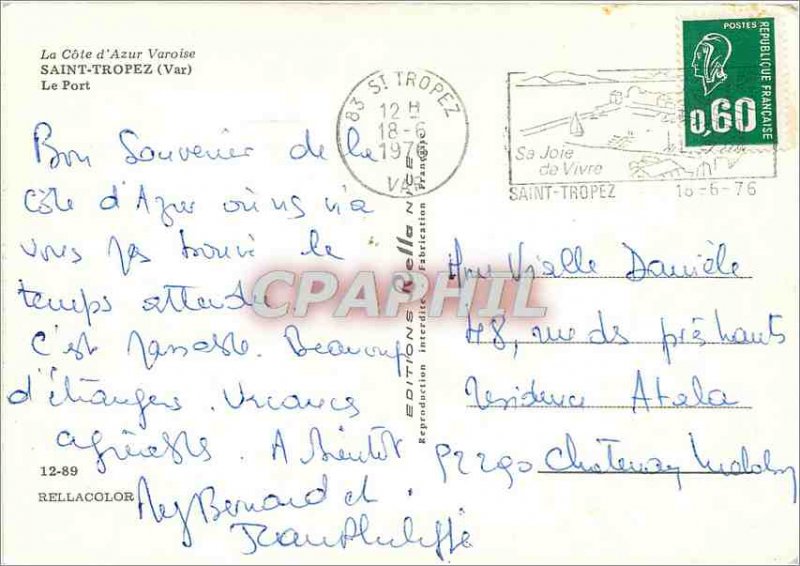 La Côte d'Azur Varoise
SAINT-TROPEZ (Var)
Le Port
83 ST TROPEZ
12 H
18-6
1976
VAR
POSTES
REPUBLIQUE FRANÇAISE
0,60
Sa Joie
de Vivre
SAINT-TROPEZ 18-6-76
Bon Souvenir de la
Côte d'Azur où ns n'a
vons pas trouvé le
temps attendu.
C'est passable. Beaucoup
d'étrangers. Vacances
agréables. A Bientôt
Bernard et
Jean Philippe
12-89
RELLACOLOR
EDITIONS Rella NICE
Reproduction interdite Fabrication Française
CPAPHIL
Mme Vialle Danièle
48, rue ds prés hauts
résidence Atala
92290 Chatenay Malabry